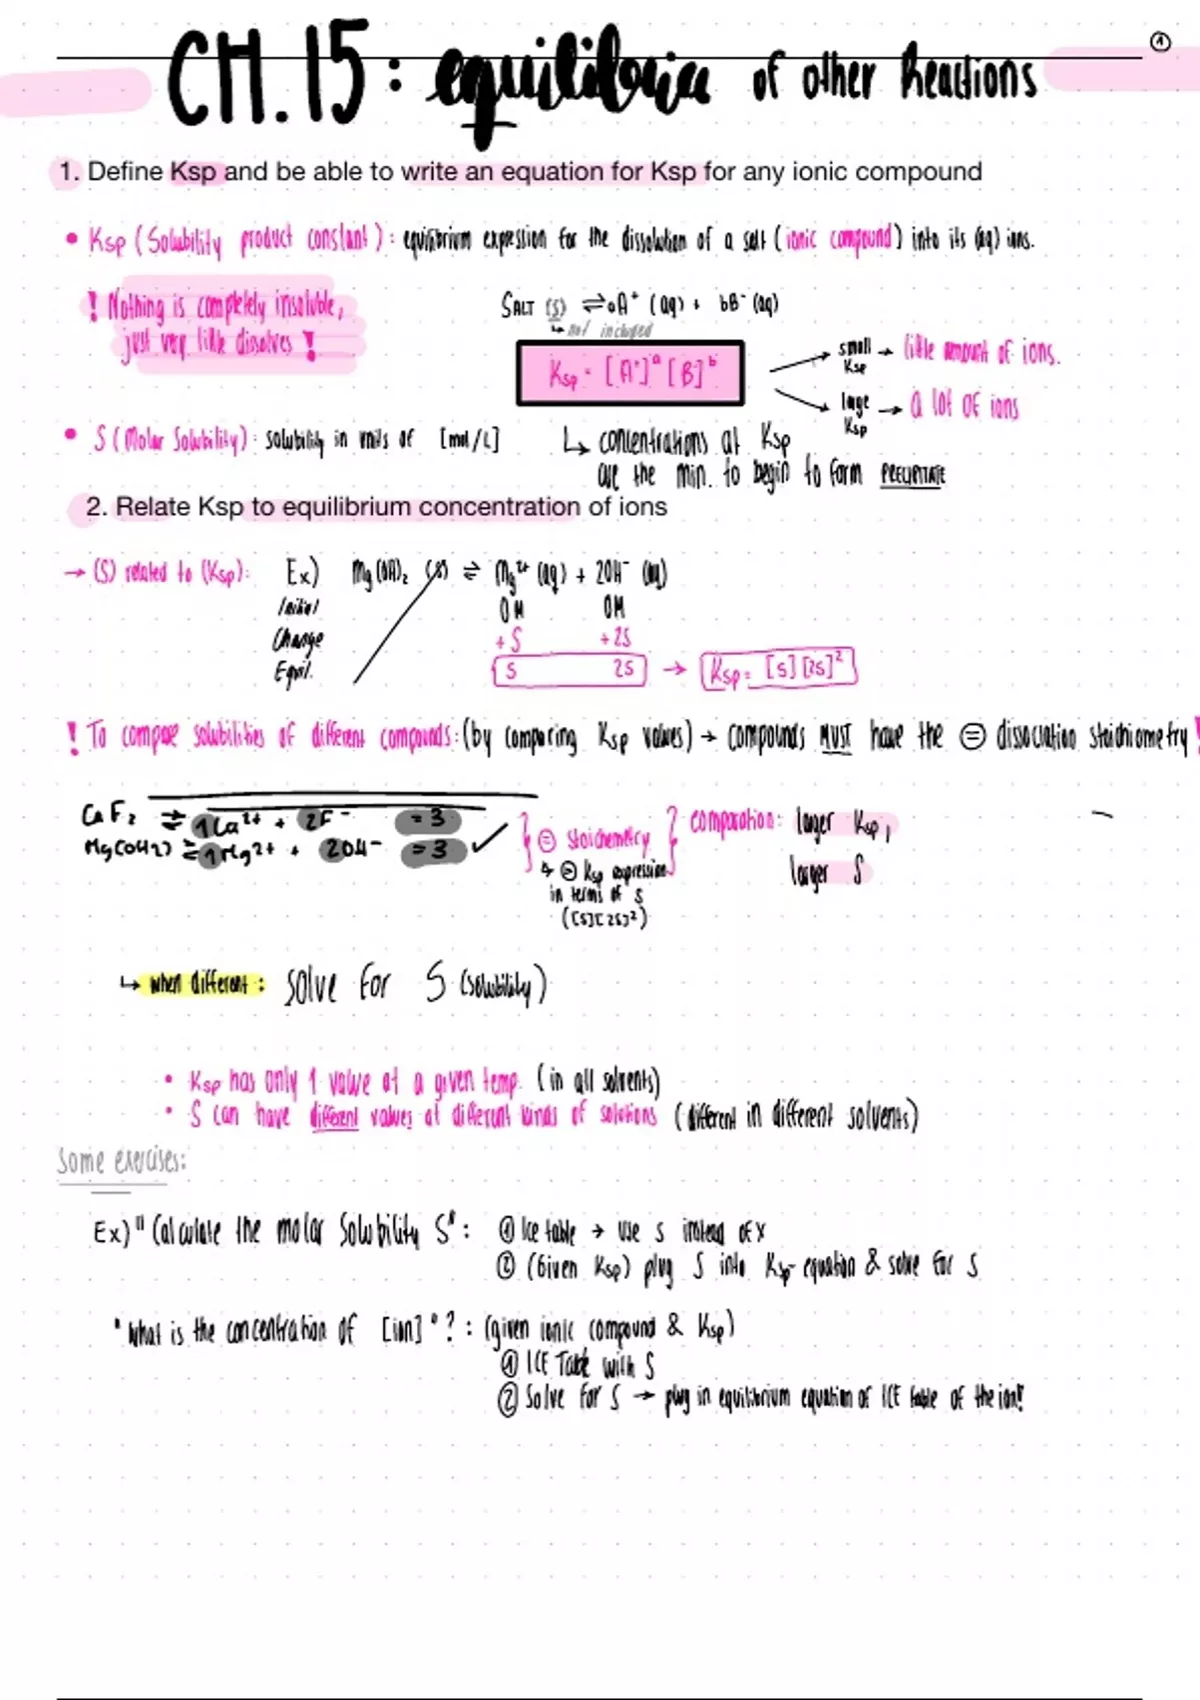 ①
CH.15: equilibria of other Reactions
1. Define Ksp and be able to write an equation for Ksp for any ionic compound
• Ksp (Solubility product constant): equilibrium expression for the dissolution of a salt (ionic compound) into its (aq) ions.
! Nothing is completely insoluble,
just very little disolves !
SALT (s) ⇌ aA⁺ (aq) + bB⁻ (aq)
↳ not included
Ksp = [A⁺]ᵃ [B]ᵇ
small Ksp → little amount of ions.
large Ksp → a lot of ions
• S (Molar Solubility): solubility in units of [mol/L]
↳ concentrations at Ksp
are the min. to begin to form PRECIPITATE
2. Relate Ksp to equilibrium concentration of ions
→ (S) related to (Ksp): Ex) Mg(OH)₂ (s) ⇌ Mg²⁺ (aq) + 2OH⁻ (aq)
Initial 0M 0M
Change +S +2S
Equil. S 2S → Ksp = [S][2S]²
! To compare solubilities of different compounds: (by comparing Ksp values) → compounds MUST have the = dissociation stoichiometry !
CaF₂ ⇌ 1Ca²⁺ + 2F⁻ = 3
Mg(OH2) ⇌ 1Mg²⁺ + 2OH⁻ = 3 ✓
= stoichemetry
↳ = Ksp expression
in terms of S
([S][2S]²)
comparation: larger Ksp,
larger S
↳ when different: solve for S (solubility)
• Ksp has only 1 value at a given temp. (in all solvents)
• S can have different values at different kinds of solutions (different in different solvents)
Some exercises:
Ex) "Calculate the molar Solubility S": ① Ice table → use s instead of x
② (Given Ksp) plug S into Ksp equation & solve for S
"What is the concentration of [ion]"?: (given ionic compound & Ksp)
① ICE Table with S
② Solve for S → plug in equilibrium equation of ICE table of the ion!